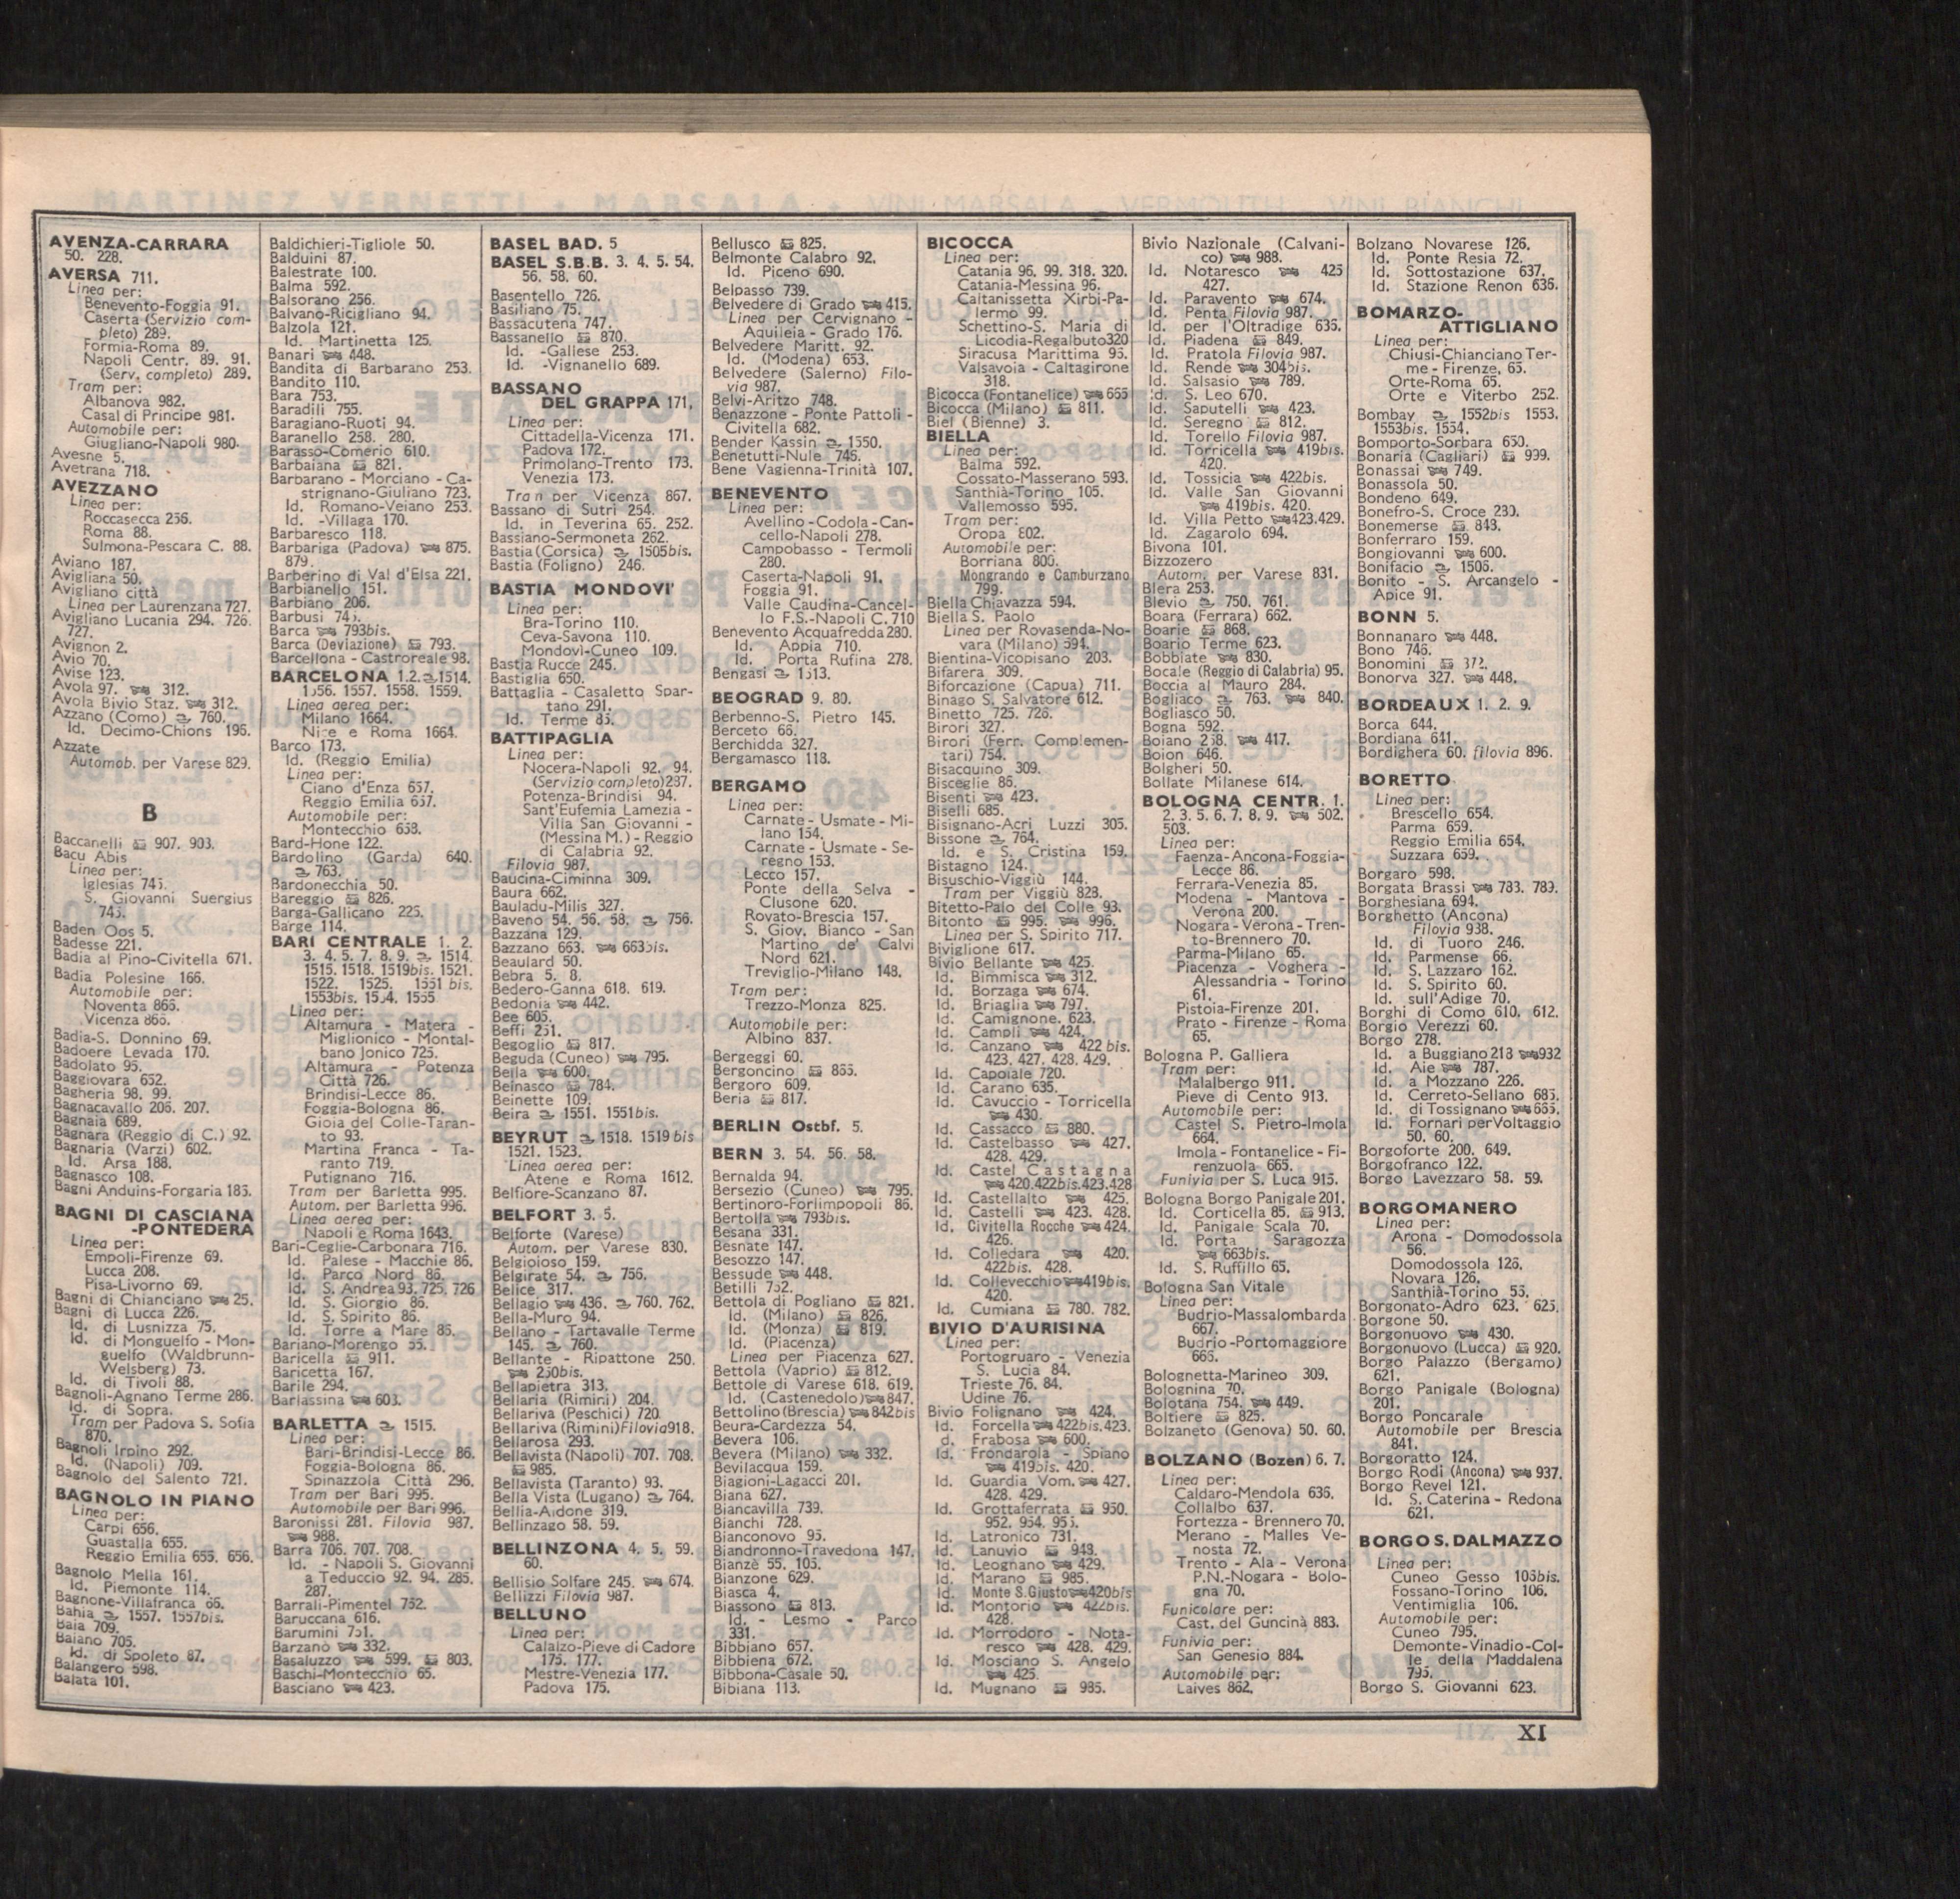 AVENZA-CARRARA
50. 228.
AVERSA 711.
Linea per:
Benevento-Foggia 91.
Caserta (Servizio com-
pleto) 289.
Formia-Roma 89.
Napoli Centr. 89. 91.
(Serv. completo) 289.
Tram per:
Albanova 982.
Casal di Principe 981.
Automobile per:
Giugliano-Napoli 980.
Avesne 5.
Avetrana 718.
AVEZZANO
Linea per:
Roccasecca 256.
Roma 88.
Sulmona-Pescara C. 88.
Aviano 187.
Avigliana 50.
Avigliano città
Linea per Laurenzana 727.
Avigliano Lucania 294. 726.
727.
Avignon 2.
Avio 70.
Avise 123.
Avola 97. 312.
Avola Bivio Staz. 312.
Azzano (Como) 760.
Id. Decimo-Chions 195.
Azzate
Automob. per Varese 829.
B
Baccanelli 907. 903.
Bacu Abis
Linea per:
Iglesias 745.
S. Giovanni Suergius
745.
Baden Oos 5.
Badesse 221.
Badia al Pino-Civitella 671.
Badia Polesine 166.
Automobile per:
Noventa 866.
Vicenza 866.
Badia-S. Donnino 69.
Badoere Levada 170.
Badolato 95.
Baggiovara 652.
Bagheria 98. 99.
Bagnacavallo 206. 207.
Bagnaia 689.
Bagnara (Reggio di C.) 92.
Bagnaria (Varzi) 602.
Id. Arsa 188.
Bagnasco 108.
Bagni Anduins-Forgaria 185.
BAGNI DI CASCIANA
-PONTEDERA
Linea per:
Empoli-Firenze 69.
Lucca 208.
Pisa-Livorno 69.
Bagni di Chianciano 25.
Bagni di Lucca 226.
Id. di Lusnizza 75.
Id. di Monguelfo - Mon-
guelfo (Waldbrunn-
Welsberg) 73.
Id. di Tivoli 88.
Bagnoli-Agnano Terme 286.
Id. di Sopra.
Tram per Padova S. Sofia
870.
Bagnoli Irpino 292.
Id. (Napoli) 709.
Bagnolo del Salento 721.
BAGNOLO IN PIANO
Linea per:
Carpi 656.
Guastalla 655.
Reggio Emilia 655. 656.
Bagnolo Mella 161.
Id. Piemonte 114.
Bagnone-Villafranca 66.
Bahia 1557. 1557bis.
Baia 709.
Baiano 705.
Id. di Spoleto 87.
Balangero 598.
Balata 101.
Baldichieri-Tigliole 50.
Balduini 87.
Balestrate 100.
Balma 592.
Balsorano 256.
Balvano-Ricigliano 94.
Balzola 121.
Id. Martinetta 125.
Banari 448.
Bandita di Barbarano 253.
Bandito 110.
Bara 753.
Baradili 755.
Baragiano-Ruoti 94.
Baranello 258. 280.
Barasso-Comerio 610.
Barbaiana 821.
Barbarano - Morciano - Ca-
strignano-Giuliano 723.
Id. Romano-Veiano 253.
Id. -Villaga 170.
Barbaresco 118.
Barbariga (Padova) 875.
879.
Barberino di Val d'Elsa 221.
Barbianello 151.
Barbiano 206.
Barbusi 745.
Barca 793bis.
Barca (Deviazione) 793.
Barcellona - Castroreale 98.
BARCELONA 1.2. 1514.
1556. 1557. 1558. 1559.
Linea aerea per:
Milano 1664.
Nice e Roma 1664.
Barco 173.
Id. (Reggio Emilia)
Linea per:
Ciano d'Enza 657.
Reggio Emilia 657.
Automobile per:
Montecchio 658.
Bard-Hone 122.
Bardolino (Garda) 640.
763.
Bardonecchia 50.
Bareggio 826.
Barga-Gallicano 225.
Barge 114.
BARI CENTRALE 1. 2.
3. 4. 5. 7. 8. 9. 1514.
1515. 1518. 1519bis. 1521.
1522. 1525. 1551 bis.
1553bis. 1554. 1555
Linea per:
Altamura - Matera -
Miglionico - Montal-
bano Jonico 725.
Altamura - Potenza
Città 726.
Brindisi-Lecce 86.
Foggia-Bologna 86.
Gioia del Colle-Taran-
to 93.
Martina Franca - Ta-
ranto 719.
Putignano 716.
Tram per Barletta 995.
Autom. per Barletta 996.
Linea aerea per:
Napoli e Roma 1643.
Bari-Ceglie-Carbonara 716.
Id. Palese - Macchie 86.
Id. Parco Nord 86.
Id. S. Andrea 93. 725. 726
Id. S. Giorgio 86.
Id. S. Spirito 86.
Id. Torre a Mare 86.
Bariano-Morengo 55.
Baricella 911.
Baricetta 167.
Barile 294.
Barlassina 603.
BARLETTA 1515.
Linea per:
Bari-Brindisi-Lecce 86.
Foggia-Bologna 86.
Spinazzola Città 296.
Tram per Bari 995.
Automobile per Bari 996.
Baronissi 281. Filovia 987.
988.
Barra 706. 707. 708.
Id. - Napoli S. Giovanni
a Teduccio 92. 94. 285.
287.
Barrali-Pimentel 752.
Baruccana 616.
Barumini 751.
Barzanò 332.
Basaluzzo 599. 803.
Baschi-Montecchio 65.
Basciano 423.
BASEL BAD. 5
BASEL S.B.B. 3. 4. 5. 54.
56. 58. 60.
Basentello 726.
Basiliano 75.
Bassacutena 747.
Bassanello 870.
Id. -Gallese 253.
Id. -Vignanello 689.
BASSANO
DEL GRAPPA 171.
Linea per:
Cittadella-Vicenza 171.
Padova 172.
Primolano-Trento 173.
Venezia 173.
Tram per Vicenza 867.
Bassano di Sutri 254.
Id. in Teverina 65. 252.
Bassiano-Sermoneta 262.
Bastia (Corsica) 1505bis.
Bastia (Foligno) 246.
BASTIA MONDOVI'
Linea per:
Bra-Torino 110.
Ceva-Savona 110.
Mondovì-Cuneo 109.
Bastia Rucce 245.
Bastiglia 650.
Battaglia - Casaletto Spar-
tano 291.
Id. Terme 85.
BATTIPAGLIA
Linea per:
Nocera-Napoli 92. 94.
(Servizio completo) 287.
Potenza-Brindisi 94.
Sant'Eufemia Lamezia -
Villa San Giovanni -
(Messina M.) - Reggio
di Calabria 92.
Filovia 987.
Baucina-Ciminna 309.
Baura 662.
Bauladu-Milis 327.
Baveno 54. 56. 58. 756.
Bazzana 129.
Bazzano 663. 663bis.
Beaulard 50.
Bebra 5. 8.
Bedero-Ganna 618. 619.
Bedonia 442.
Bee 605.
Beffi 251.
Begoglio 817.
Beguda (Cuneo) 795.
Beila 600.
Beinasco 784.
Beinette 109.
Beira 1551. 1551bis.
BEYRUT 1518. 1519 bis
1521. 1523.
Linea aerea per:
Atene e Roma 1612.
Belfiore-Scanzano 87.
BELFORT 3. 5.
Belforte (Varese)
Autom. per Varese 830.
Belgioioso 159.
Belgirate 54. 756.
Belice 317.
Bellagio 436. 760. 762.
Bella-Muro 94.
Bellano - Tartavalle Terme
145. 760.
Bellante - Ripattone 250.
250bis.
Bellapietra 313.
Bellaria (Rimini) 204.
Bellariva (Peschici) 720.
Bellariva (Rimini) Filovia 918.
Bellarosa 293.
Bellavista (Napoli) 707. 708.
985.
Bellavista (Taranto) 93.
Bella Vista (Lugano) 764.
Bellia-Aidone 319.
Bellinzago 58. 59.
BELLINZONA 4. 5. 59.
60.
Bellisio Solfare 245. 674.
Bellizzi Filovia 987.
BELLUNO
Linea per:
Calalzo-Pieve di Cadore
175. 177.
Mestre-Venezia 177.
Padova 175.
Bellusco 825.
Belmonte Calabro 92.
Id. Piceno 690.
Belpasso 739.
Belvedere di Grado 415.
Linea per Cervignano -
Aquileia - Grado 176.
Belvedere Maritt. 92.
Id. (Modena) 653.
Belvedere (Salerno) Filo-
via 987.
Belvi-Aritzo 748.
Benazzone - Ponte Pattoli -
Civitella 682.
Bender Kassin 1550.
Benetutti-Nule 746.
Bene Vagienna-Trinità 107.
BENEVENTO
Linea per:
Avellino-Codola-Can-
cello-Napoli 278.
Campobasso - Termoli
280.
Caserta-Napoli 91.
Foggia 91.
Valle Caudina-Cancel-
lo F.S.-Napoli C. 710
Benevento Acquafredda 280.
Id. Appia 710.
Id. Porta Rufina 278.
Bengasi 1513.
BEOGRAD 9. 80.
Berbenno-S. Pietro 145.
Berceto 66.
Berchidda 327.
Bergamasco 118.
BERGAMO
Linea per:
Carnate - Usmate - Mi-
lano 154.
Carnate - Usmate - Se-
regno 153.
Lecco 157.
Ponte della Selva -
Clusone 620.
Rovato-Brescia 157.
S. Giov. Bianco - San
Martino de' Calvi
Nord 621.
Treviglio-Milano 148.
Tram per:
Trezzo-Monza 825.
Automobile per:
Albino 837.
Bergeggi 60.
Bergoncino 855.
Bergoro 609.
Beria 817.
BERLIN Ostbf. 5.
BERN 3. 54. 56. 58.
Bernalda 94.
Bersezio (Cuneo) 795.
Bertinoro-Forlimpopoli 86.
Bertolla 793bis.
Besana 331.
Besnate 147.
Besozzo 147.
Bessude 448.
Betilli 752.
Bettola di Pogliano 821.
Id. (Milano) 826.
Id. (Monza) 819.
Id. (Piacenza)
Linea per Piacenza 627.
Bettola (Vaprio) 812.
Bettole di Varese 618. 619.
Id. (Castenedolo) 847.
Bettolino (Brescia) 842bis
Beura-Cardezza 54.
Bevera 106.
Bevera (Milano) 332.
Bevilacqua 159.
Biagioni-Lagacci 201.
Biana 627.
Biancavilla 739.
Bianchi 728.
Bianconovo 95.
Biandronno-Travedona 147.
Bianzè 55. 105.
Bianzone 629.
Biasca 4.
Biassono 813.
Id. - Lesmo - Parco
331.
Bibbiano 657.
Bibbiena 672.
Bibbona-Casale 50.
Bibiana 113.
BICOCCA
Linea per:
Catania 96. 99. 318. 320.
Catania-Messina 96.
Caltanissetta Xirbi-Pa-
lermo 99.
Schettino-S. Maria di
Licodia-Regalbuto 320
Siracusa Marittima 95.
Valsavoia - Caltagirone
318.
Bicocca (Fontanelice) 665
Bicocca (Milano) 811.
Biel (Bienne) 3.
BIELLA
Linea per:
Balma 592.
Cossato-Masserano 593.
Santhià-Torino 105.
Vallemosso 595.
Tram per:
Oropa 802.
Automobile per:
Borriana 800.
Mongrando e Camburzano
799.
Biella Chiavazza 594.
Biella S. Paolo
Linea per Rovasenda-No-
vara (Milano) 594.
Bientina-Vicopisano 203.
Bifarera 309.
Biforcazione (Capua) 711.
Binago S. Salvatore 612.
Binetto 725. 726.
Birori 327.
Birori (Ferr. Complemen-
tari) 754.
Bisacquino 309.
Bisceglie 86.
Bisenti 423.
Biselli 685.
Bisignano-Acri Luzzi 305.
Bissone 764.
Id. e S. Cristina 159.
Bistagno 124.
Bisuschio-Viggiù 144.
Tram per Viggiù 828.
Bitetto-Palo del Colle 93.
Bitonto 995. 996.
Linea per S. Spirito 717.
Biviglione 617.
Bivio Bellante 425.
Id. Bimmisca 312.
Id. Borzaga 674.
Id. Briaglia 797.
Id. Camignone. 623.
Id. Campli 424.
Id. Canzano 422 bis.
423. 427. 428. 429.
Id. Capoiale 720.
Id. Carano 635.
Id. Cavuccio - Torricella
430.
Id. Cassacco 880.
Id. Castelbasso 427.
428. 429.
Id. Castel Castagna
420. 422bis. 423. 428
Id. Castellalto 425.
Id. Castelli 423. 428.
Id. Civitella Rocche 424.
426.
Id. Colledara 420.
422bis. 428.
Id. Collevecchio 419bis.
420.
Id. Cumiana 780. 782.
BIVIO D'AURISINA
Linea per:
Portogruaro - Venezia
S. Lucia 84.
Trieste 76. 84.
Udine 76.
Bivio Folignano 424.
Id. Forcella 422bis. 423.
d. Frabosa 600.
Id. Frondarola - Spiano
419bis. 420.
Id. Guardia Vom. 427.
428. 429.
Id. Grottaferrata 950.
952. 954. 955.
Id. Latronico 731.
Id. Lanuvio 948.
Id. Leognano 429.
Id. Marano 985.
Id. Monte S. Giusto 420bis
Id. Montorio 422bis.
428.
Id. Morrodoro - Nota-
resco 428. 429.
Id. Mosciano S. Angelo
425.
Id. Mugnano 985.
Bivio Nazionale (Calvani-
co) 988.
Id. Notaresco 425
427.
Id. Paravento 674.
Id. Penta Filovia 987.
Id. per l'Oltradige 635.
Id. Piadena 849.
Id. Pratola Filovia 987.
Id. Rende 304bis.
Id. Salsasio 789.
Id. S. Leo 670.
Id. Saputelli 423.
Id. Seregno 812.
Id. Torello Filovia 987.
Id. Torricella 419bis.
420.
Id. Tossicia 422bis.
Id. Valle San Giovanni
419bis. 420.
Id. Villa Petto 423. 429.
Id. Zagarolo 694.
Bivona 101.
Bizzozero
Autom. per Varese 831.
Blera 253.
Blevio 750. 761.
Boara (Ferrara) 662.
Boarie 868.
Boario Terme 623.
Bobbiate 830.
Bocale (Reggio di Calabria) 95.
Boccia al Mauro 284.
Bogliaco 763. 840.
Bogliasco 50.
Bogna 592.
Boiano 258. 417.
Boion 646.
Bolgheri 50.
Bollate Milanese 614.
BOLOGNA CENTR. 1.
2. 3. 5. 6. 7. 8. 9. 502.
503.
Linea per:
Faenza-Ancona-Foggia-
Lecce 86.
Ferrara-Venezia 85.
Modena - Mantova -
Verona 200.
Nogara - Verona - Tren-
to-Brennero 70.
Parma-Milano 65.
Piacenza - Voghera -
Alessandria - Torino
61.
Pistoia-Firenze 201.
Prato - Firenze - Roma
65.
Bologna P. Galliera
Tram per:
Malalbergo 911.
Pieve di Cento 913.
Automobile per:
Castel S. Pietro-Imola
664.
Imola - Fontanelice - Fi-
renzuola 665.
Funivia per S. Luca 915.
Bologna Borgo Panigale 201.
Id. Corticella 85. 913.
Id. Panigale Scala 70.
Id. Porta Saragozza
663bis.
Id. S. Ruffillo 65.
Bologna San Vitale
Linea per:
Budrio-Massalombarda
667.
Budrio-Portomaggiore
666.
Bolognetta-Marineo 309.
Bolognina 70.
Bolotana 754. 449.
Boltiere 825.
Bolzaneto (Genova) 50. 60.
BOLZANO (Bozen) 6. 7.
Linea per:
Caldaro-Mendola 636.
Collalbo 637.
Fortezza - Brennero 70.
Merano - Malles Ve-
nosta 72.
Trento - Ala - Verona
P.N.-Nogara - Bolo-
gna 70.
Funicolare per:
Cast. del Guncinà 883.
Funivia per:
San Genesio 884.
Automobile per:
Laives 862.
Bolzano Novarese 126.
Id. Ponte Resia 72.
Id. Sottostazione 637.
Id. Stazione Renon 636.
BOMARZO-
ATTIGLIANO
Linea per:
Chiusi-Chianciano Ter-
me - Firenze. 65.
Orte-Roma 65.
Orte e Viterbo 252.
Bombay 1552bis 1553.
1553bis. 1554.
Bomporto-Sorbara 650.
Bonaria (Cagliari) 999.
Bonassai 749.
Bonassola 50.
Bondeno 649.
Bonefro-S. Croce 280.
Bonemerse 848.
Bonferraro 159.
Bongiovanni 600.
Bonifacio 1506.
Bonito - S. Arcangelo -
Apice 91.
BONN 5.
Bonnanaro 448.
Bono 746.
Bonomini 872.
Bonorva 327. 448.
BORDEAUX 1. 2. 9.
Borca 644.
Bordiana 641.
Bordighera 60. filovia 896.
BORETTO
Linea per:
Brescello 654.
Parma 659.
Reggio Emilia 654.
Suzzara 659.
Borgaro 598.
Borgata Brassi 783. 789.
Borghesiana 694.
Borghetto (Ancona)
Filovia 938.
Id. di Tuoro 246.
Id. Parmense 66.
Id. S. Lazzaro 162.
Id. S. Spirito 60.
Id. sull'Adige 70.
Borghi di Como 610. 612.
Borgio Verezzi 60.
Borgo 278.
Id. a Buggiano 218 932
Id. Aie 787.
Id. a Mozzano 226.
Id. Cerreto-Sellano 685.
Id. di Tossignano 665.
Id. Fornari per Voltaggio
50. 60.
Borgoforte 200. 649.
Borgofranco 122.
Borgo Lavezzaro 58. 59.
BORGOMANERO
Linea per:
Arona - Domodossola
56.
Domodossola 126.
Novara 126.
Santhià-Torino 55.
Borgonato-Adro 623. 625.
Borgone 50.
Borgonuovo 430.
Borgonuovo (Lucca) 920.
Borgo Palazzo (Bergamo)
621.
Borgo Panigale (Bologna)
201.
Borgo Poncarale
Automobile per Brescia
841.
Borgoratto 124.
Borgo Rodi (Ancona) 937.
Borgo Revel 121.
Id. S. Caterina - Redona
621.
BORGO S. DALMAZZO
Linea per:
Cuneo Gesso 105bis.
Fossano-Torino 106.
Ventimiglia 106.
Automobile per:
Cuneo 795.
Demonte-Vinadio-Col-
le della Maddalena
795.
Borgo S. Giovanni 623.
XI